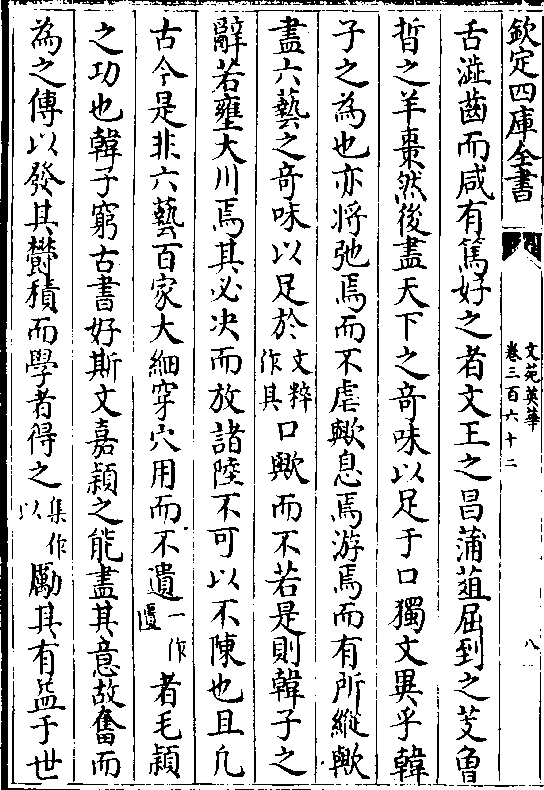 欽定四庫全書
文苑英華
卷三百六十二
八
舌澁齒而咸有篤好之者文王之昌蒲葅屈到之芰魯
晳之羊棗然後盡天下之奇味以足于口獨文異乎韓
子之為也亦將弛焉而不虐歟息焉游焉而有所縱歟
盡六藝之奇味以足於文粹作其口歟而不若是則韓子之
辭若壅大川焉其必决而放諸陸不可以不陳也且凡
古今是非六藝百家大細穿穴用而不遺一作遺者毛穎
之功也韓子窮古書好斯文嘉穎之能盡其意故奮而
為之傳以發其鬱積而學者得之集作以勵其有益于世